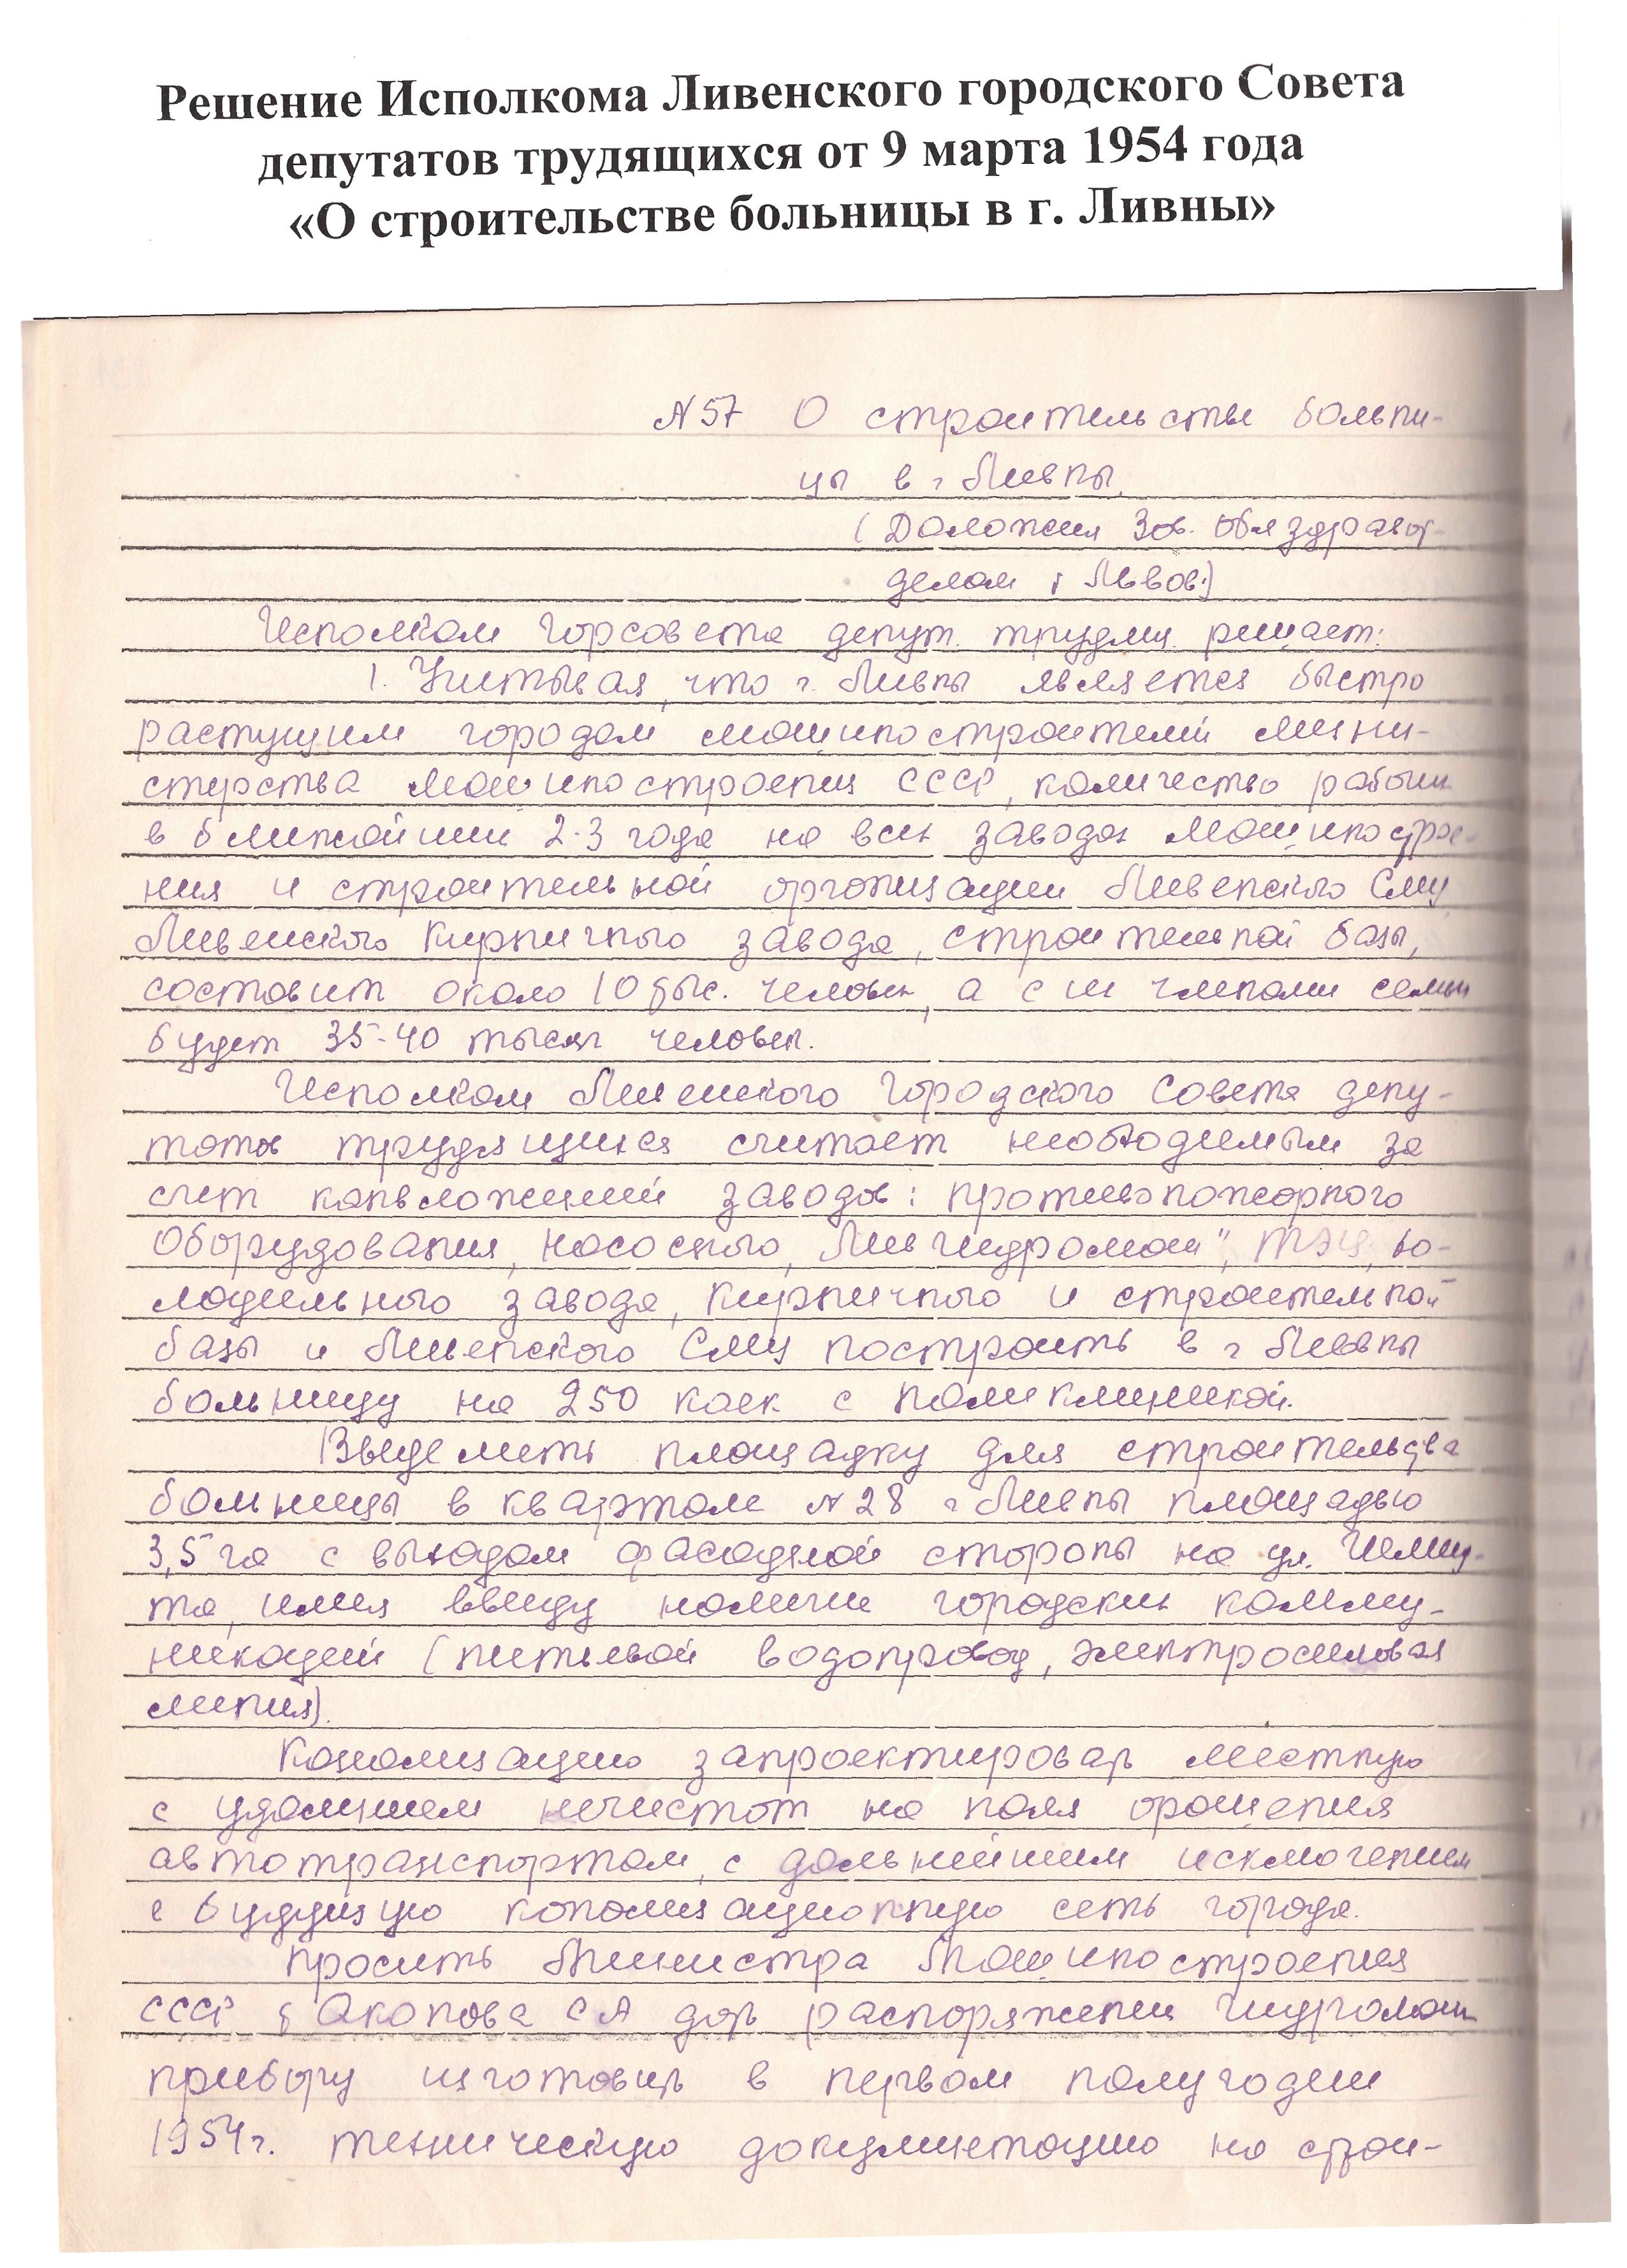 Решение Исполкома Ливенского городского Совета
депутатов трудящихся от 9 марта 1954 года
«О строительстве больницы в г. Ливны»
№ 57 О строительстве больни-
цы в г Ливны.
(Доложил Зав. Облздравот-
делом т Львов.)
Исполком Горсовета депут. трудящ. решает:
1. Учитывая, что г. Ливны является быстро
растущим городом машиностроителей мини-
стерства машиностроения СССР, количество рабочих
в ближайшии 2-3 года на всех заводах машиностро-
ния и строительной организации Ливенского Сму
Ливенского Кирпичного завода, строительной базы,
составит около 10 тыс. человек, а с их членами семьи
будет 35-40 тысяч человек.
Исполком Ливенского Городского Совета депу-
татов трудящихся считает необходимым за
счет капвложений заводов: противопожарного
Оборудования, насосного, „Ливгидромаш", ТЭЦ, хо-
лодильного завода, Кирпичного и строительной
базы и Ливенского Сму построить в г Ливны
больницу на 250 коек с поликлиникой.
Выделить площадку для строительства
больницы в квартале № 28 г Ливны площадью
3,5 га с выходом фасадной стороны на ул.
та, имея ввиду наличие городских комму-
никаций (питьевой водопровод, электросиловая
линия).
Канализацию запроектировать местную
с удалением нечистот на поля орошения
автотранспортом, с дальнейшим исключением
в будущую канализационную сеть города.
Просить Министра Машиностроения
СССР т Акопова С А дать распоряжении Гидромаш
прибору изготовить в первом полугодии
1954 г. техническую документацию на строи-